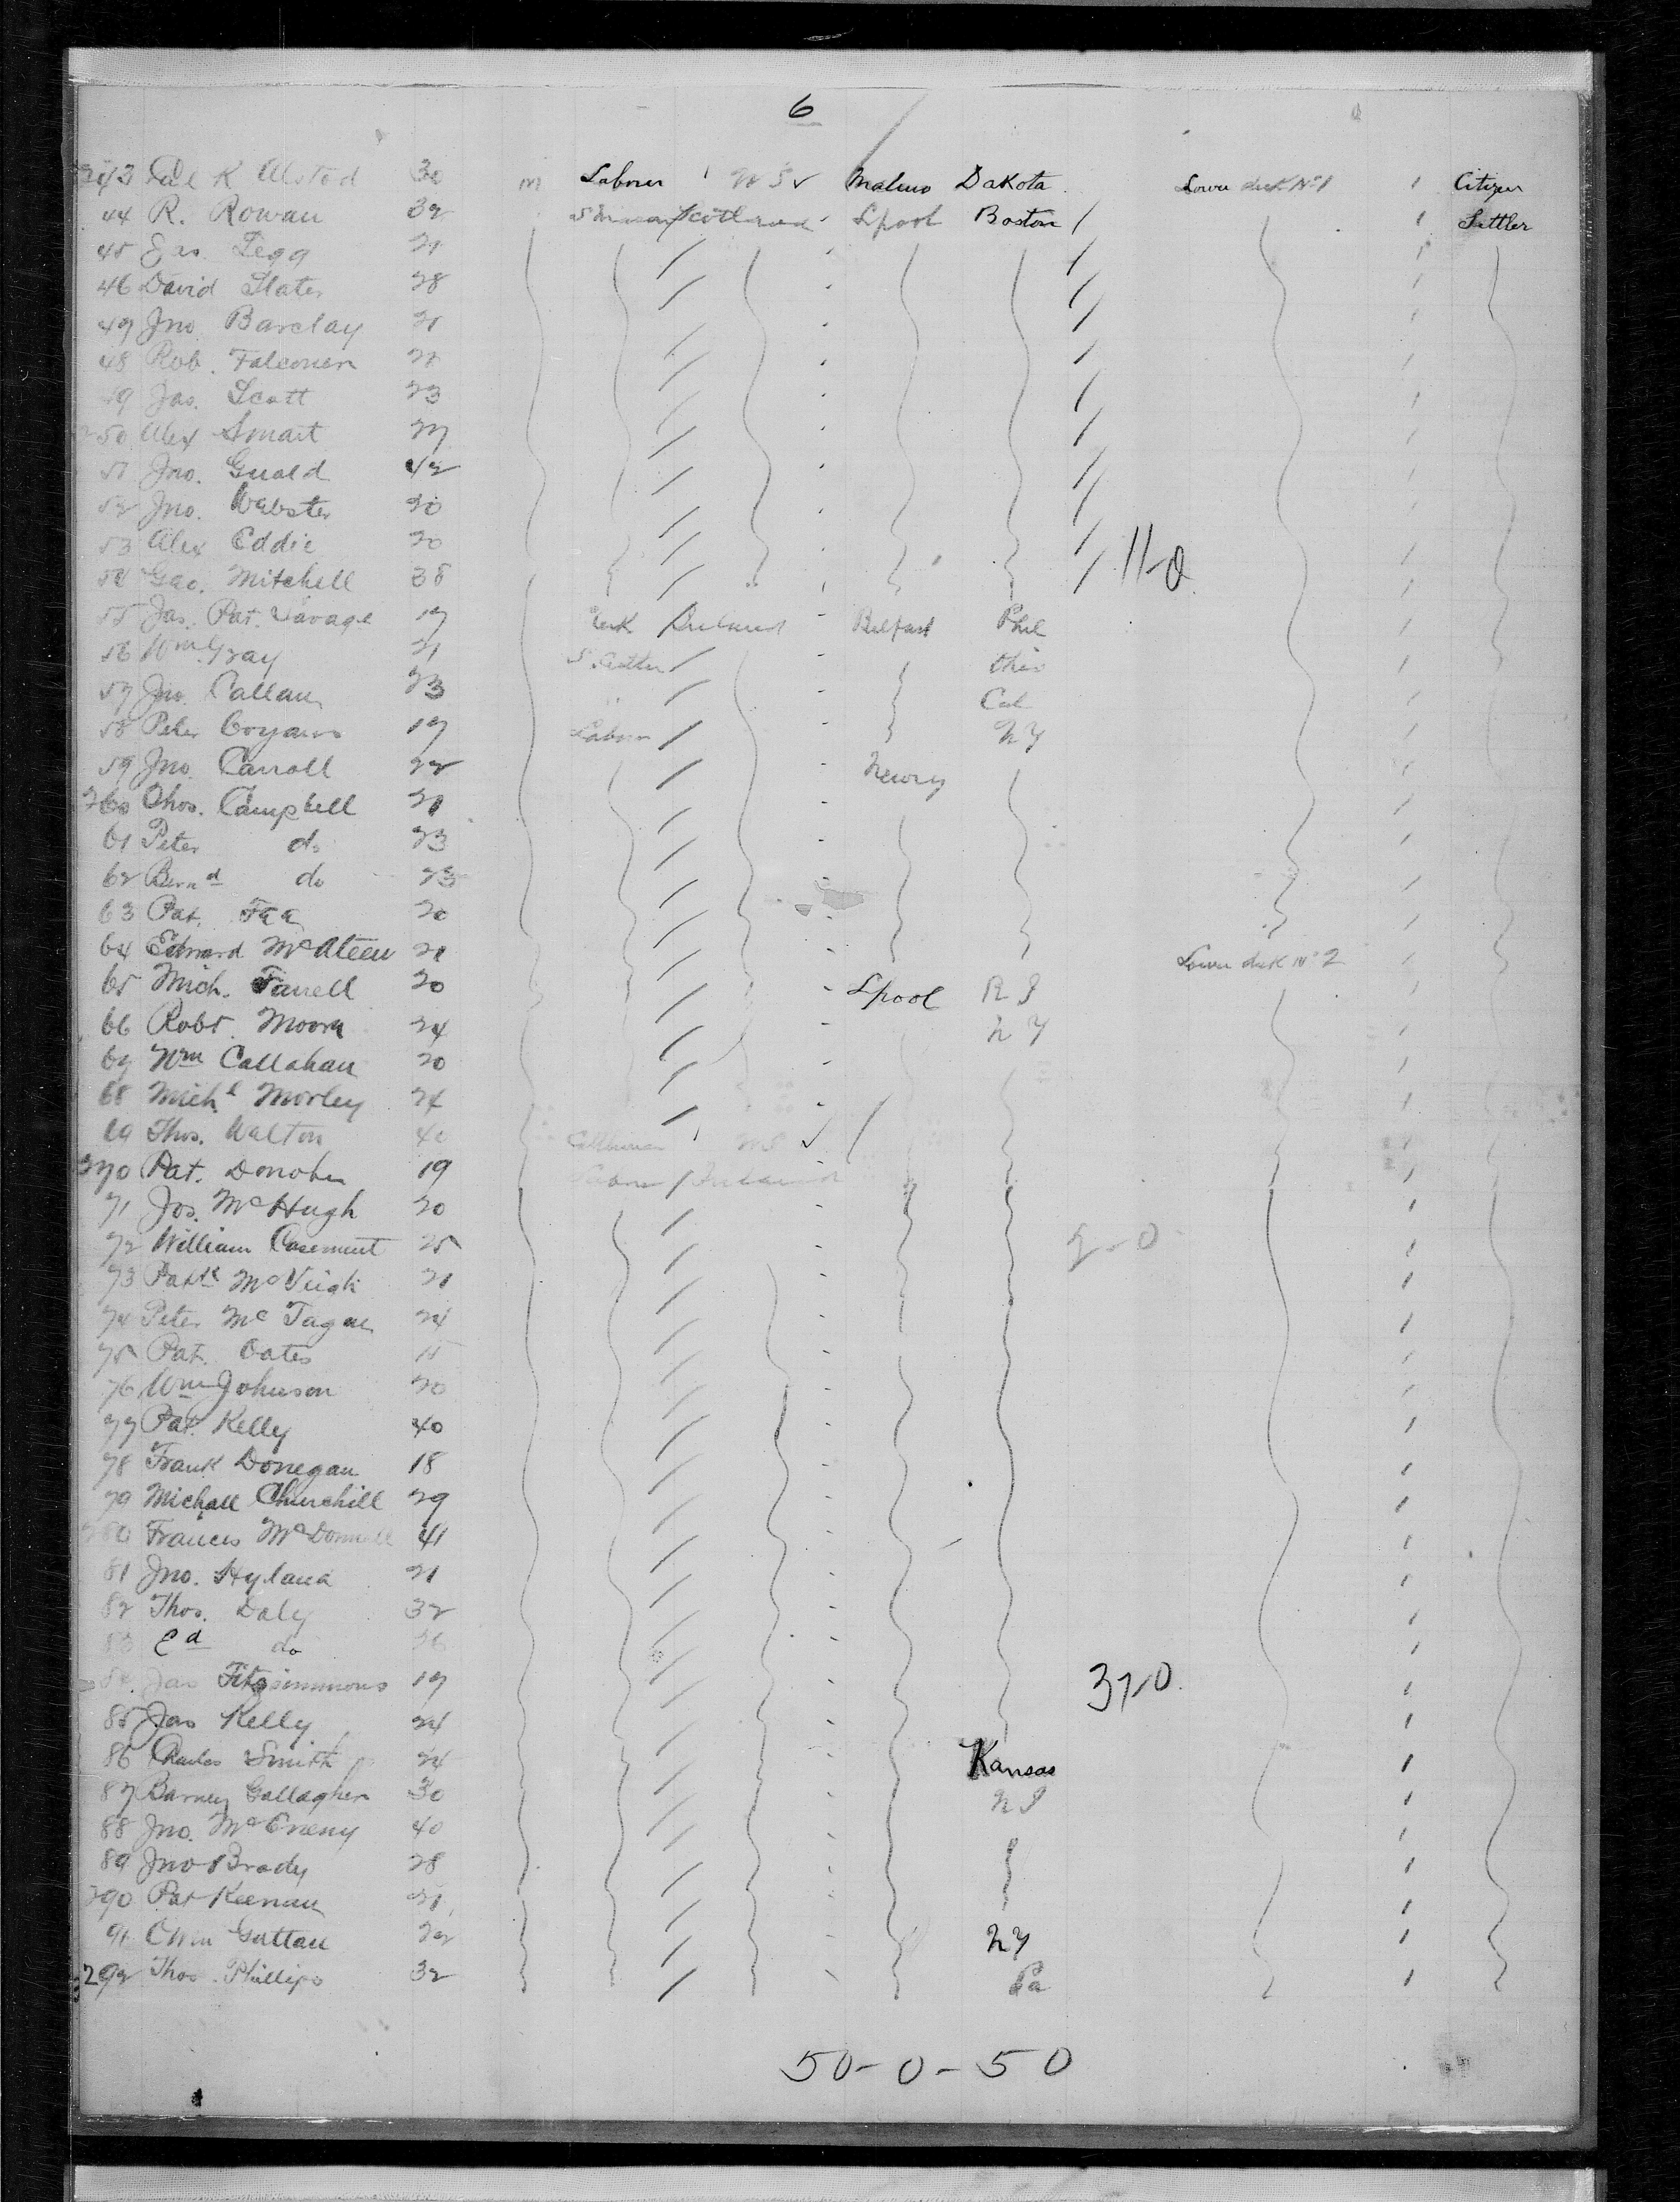 6
243 K Alstad 30 m Labour U S Malmo Dakota Lower deck No 1 Citizen
44 R. Rowan 32 Scotland Lpool Boston Settler
45 Jas. Legg 21
46 David Slater 28
49 Jno. Barclay 21
48 Rob. Falconer
49 Jas. Scott 23
50 Alex Smart 27
51 Jno. Guald 42
52 Jno. Webster 20
53 Alex Eddie 20 11-0
54 Geo. Mitchell 38
55 Jas. Pat. Savage 19 Ireland Belfast Phil
56 Wm Gray 21
57 Jno. Callan 23 Cal
58 Peter 19 Labour NY
59 Jno. Carroll 22 Newry
260 Thos. Campbell 21
61 Peter do 23
62 Bernd do 23
63 Pat. 20
64 Edward McAteer 21 Lower deck No 2
65 Mich. Farrell 20 Lpool R I
66 Robt. Moore 24 N Y
67 Wm Callahan 20
68 Michl Morley 24
69 Thos. Walton 40 U S
270 Pat. Donohue 19 Labour Ireland
71 Jos. McHugh 20
72 William Casement 25 2-0
73 Patk McVeigh 21
74 Peter McTague 24
75 Pat. Oates
76 Wm Johnson 20
77 Pat. Kelly 40
78 Frank Donegan 18
79 Michael Churchill 29
280 Frances McDonnell 41
81 Jno. Hyland 21
82 Thos. Daly 32
83 Ed do 36
84 Jas Fitzsimmons 19 37-0
85 Jas Kelly 24
86 Charles Smith 24 Kansas
87 Barney Gallagher 30
88 Jno. McEneny 40
89 Jno Brady 28
290 Pat Keenan 21
91 22 NY
292 Thos. Phillips 32 Pa
50-0-50